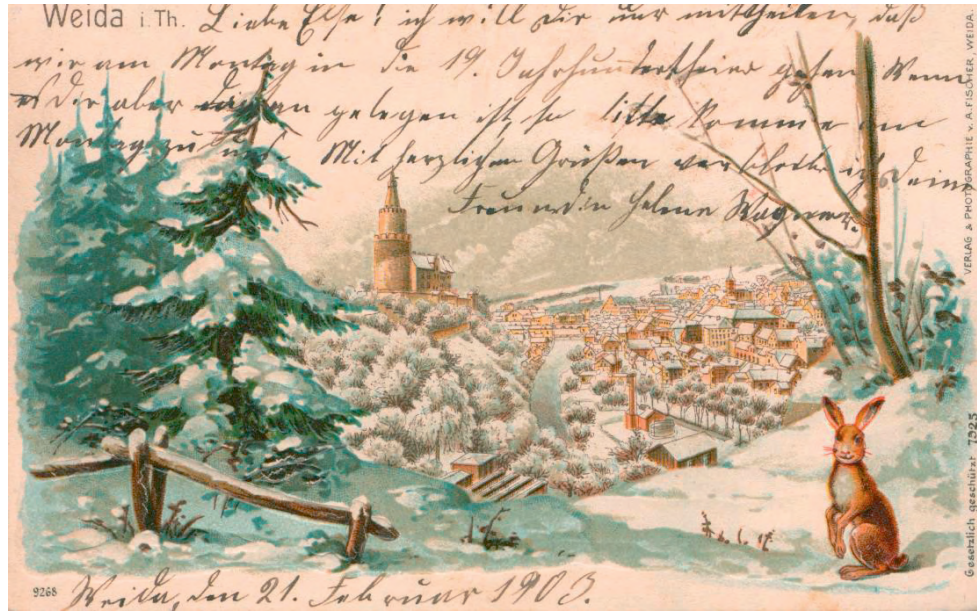 Weida i. Th.
Liebe Else! ich will Dir nur mittheilen, daß
wir am Montag in die 19. Jahrhundertfeier gehen Wenn
es Dir aber daran gelegen ist, so bitte komme am
Montag zu uns. Mit herzlichen Grüßen verbleibe ich Deine
Freundin Helene Wagner.
VERLAG & PHOTOGRAPHIE v. A. FISCHER, WEIDA.
Gesetzlich geschützt 7325
9268
Weida, den 21. Februar 1903.